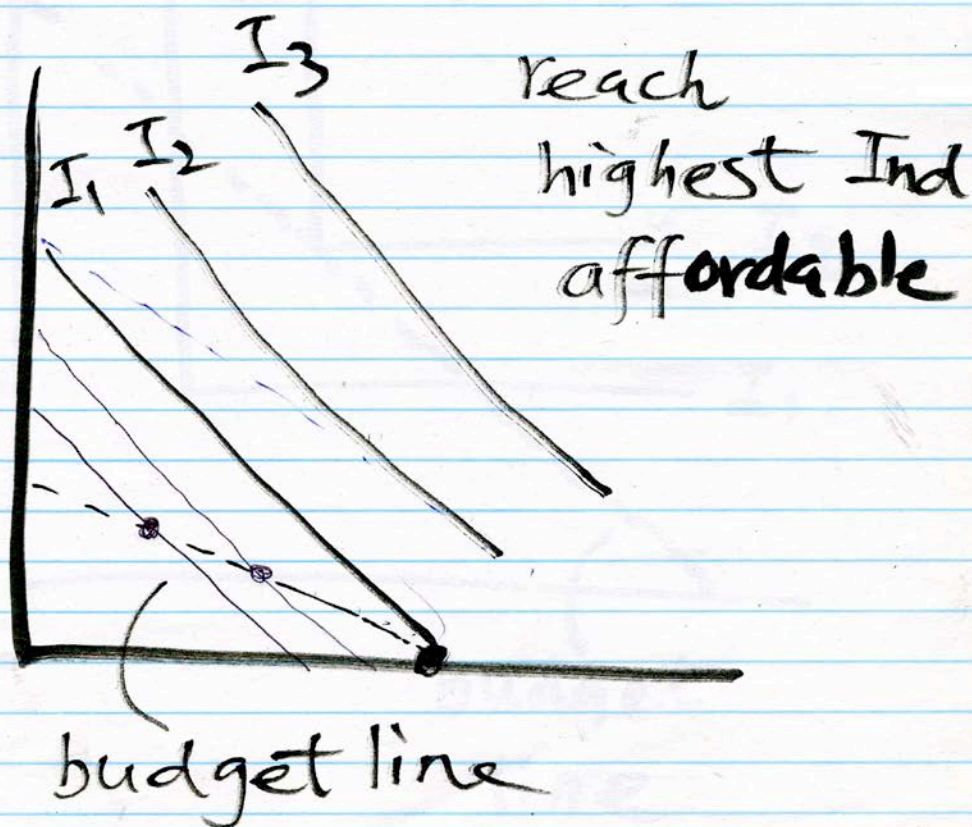 I₃
reach
I₂
highest Ind
I₁
affordable
budget line